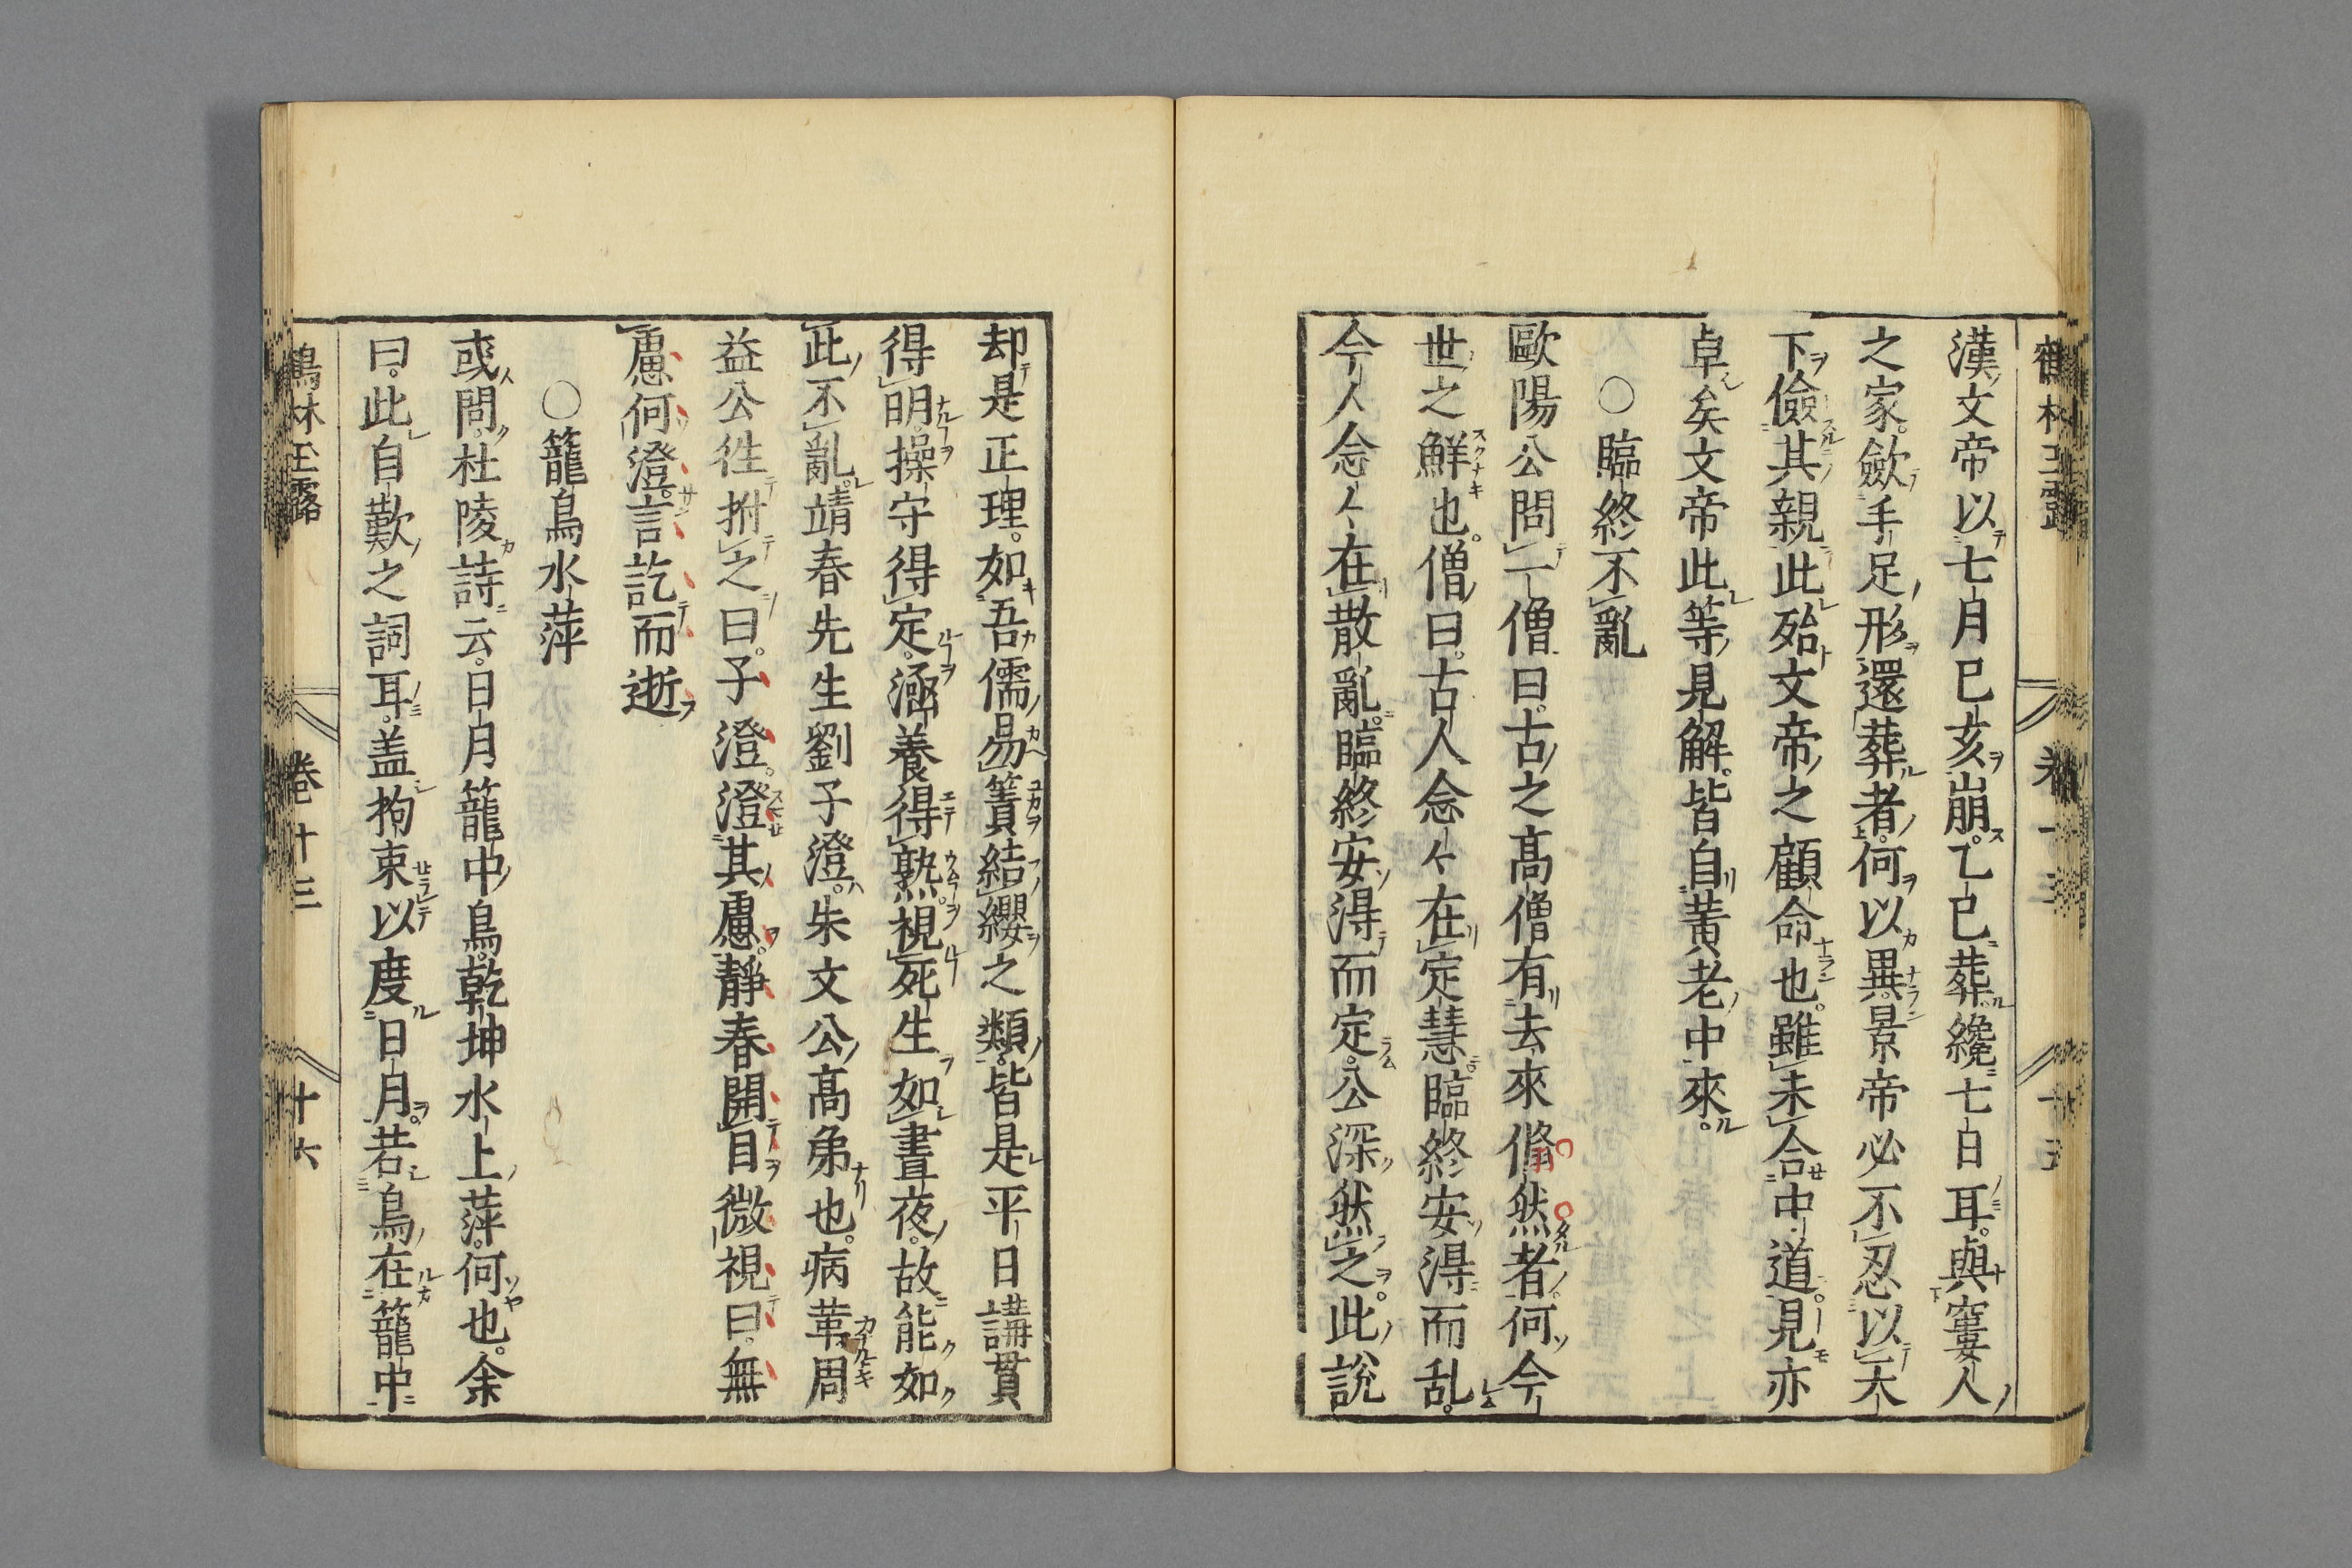 鶴林玉露 卷十三 十五
漢文帝以七月巳亥崩乙巳葬纔七日耳與窶人
之家歛手足形還葬者何以異景帝必不忍以天
下儉其親此殆文帝之顧命也雖未合中道見亦
卓矣文帝此等見解皆自黃老中來
○臨終不亂
歐陽公問一僧曰古之高僧有去來翛然者何今
世之鮮也僧曰古人念々在定慧臨終安得而乱
今人念々在散亂臨終安得而定公深然之此說
却是正理如吾儒易簀結纓之類皆是平日講貫
得明操守得定涵養得熟視死生如晝夜故能如
此不亂靖春先生劉子澄朱文公高弟也病革周
益公徃拊之曰子澄澄其慮靜春開目微視曰無
慮何澄言訖而逝
○籠鳥水萍
或問杜陵詩云日月籠中鳥乾坤水上萍何也余
曰此自歎之詞耳盖拘束以度日月若鳥在籠中
鶴林玉露 卷十三 十六